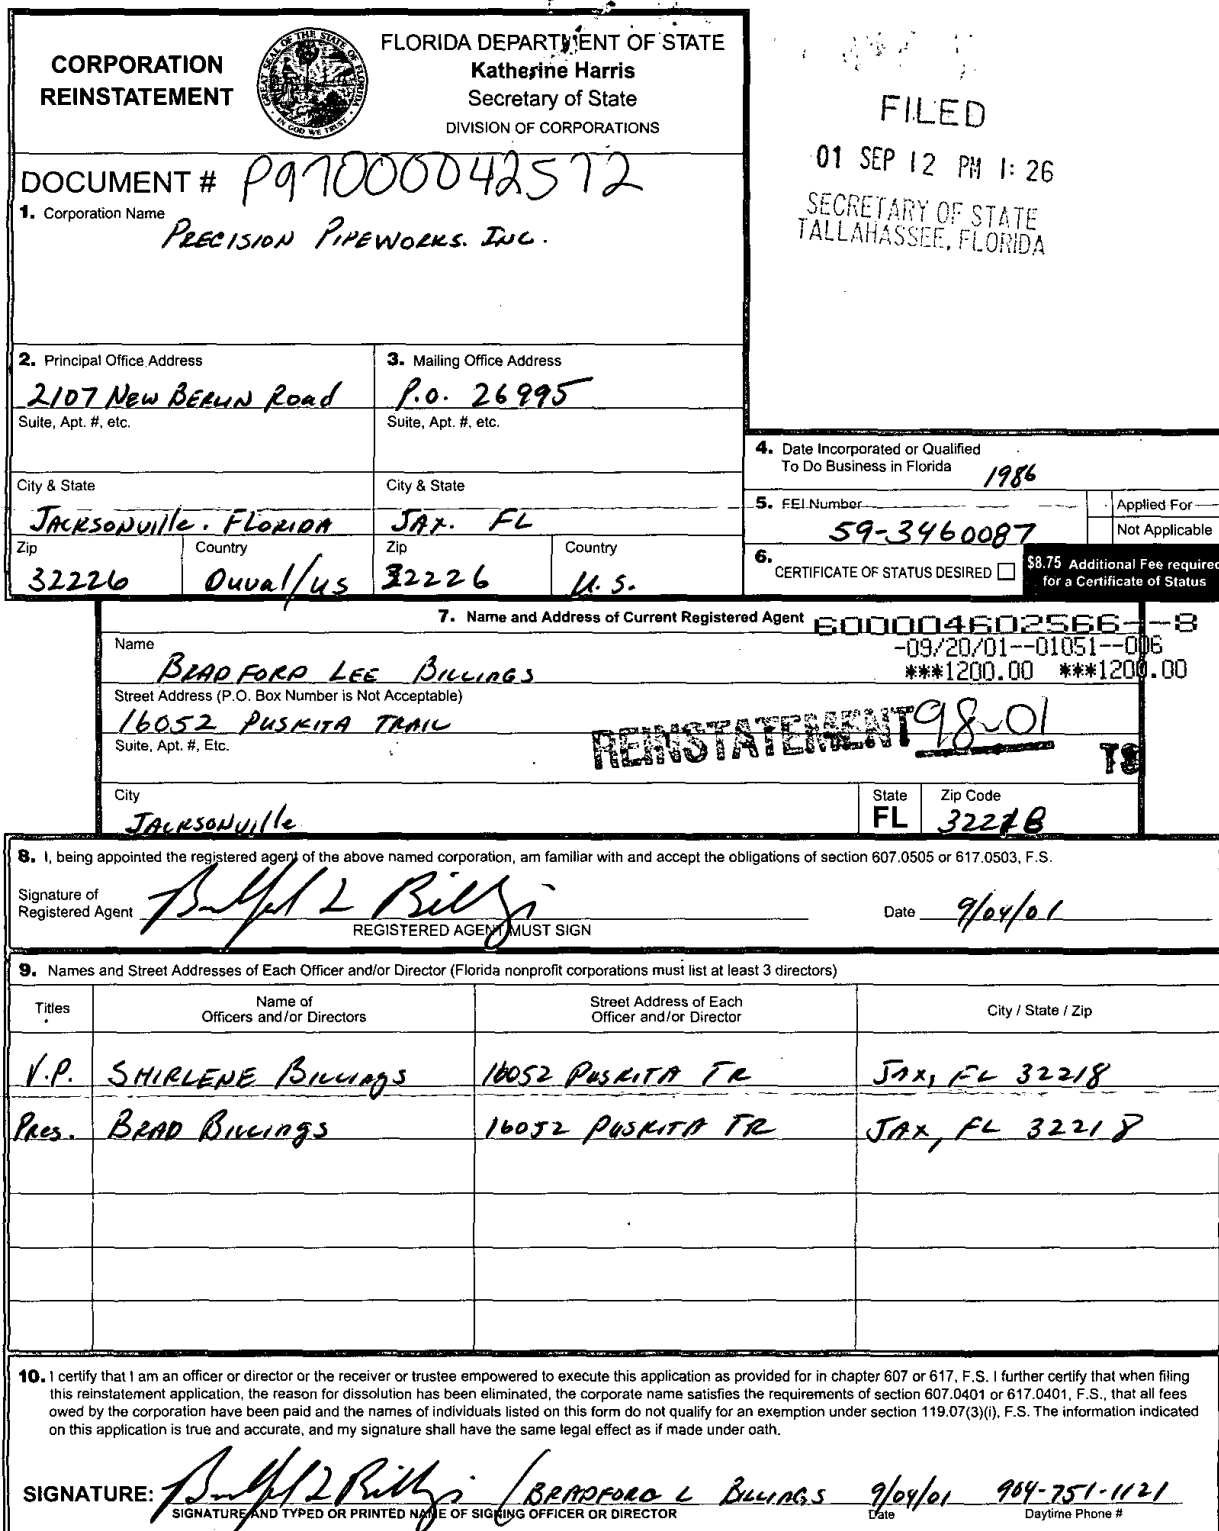 CORPORATION
REINSTATEMENT
GREAT SEAL OF THE STATE OF FLORIDA
IN GOD WE TRUST
FLORIDA DEPARTMENT OF STATE
Katherine Harris
Secretary of State
DIVISION OF CORPORATIONS
FILED
01 SEP 12 PM 1:26
SECRETARY OF STATE
TALLAHASSEE, FLORIDA
DOCUMENT # P97000042572
1. Corporation Name
PRECISION PIPEWORKS. INC.
2. Principal Office Address
3. Mailing Office Address
2107 NEW BERLIN Road
P.O. 26995
Suite, Apt. #, etc.
Suite, Apt. #, etc.
4. Date Incorporated or Qualified
To Do Business in Florida
1986
City & State
City & State
JACKSONville. FLORIDA
JAX. FL
5. FEI Number
59-3460087
Applied For
Not Applicable
Zip
Country
Zip
Country
32226
Duval/us
32226
U.S.
6. CERTIFICATE OF STATUS DESIRED
$8.75 Additional Fee required
for a Certificate of Status
7. Name and Address of Current Registered Agent
600004602566--8
-09/20/01--01051--006
***1200.00 ***1200.00
Name
BRADFORD LEE BILLINGS
Street Address (P.O. Box Number is Not Acceptable)
16052 PUSKITA TRAIL
Suite, Apt. #, Etc.
REINSTATEMENT 98-01
TS
City
JACKSONville
State
FL
Zip Code
32218
8. I, being appointed the registered agent of the above named corporation, am familiar with and accept the obligations of section 607.0505 or 617.0503, F.S.
Signature of
Registered Agent
Bradford L Billings
REGISTERED AGENT MUST SIGN
Date 9/04/01
9. Names and Street Addresses of Each Officer and/or Director (Florida nonprofit corporations must list at least 3 directors)
Titles
Name of
Officers and/or Directors
Street Address of Each
Officer and/or Director
City / State / Zip
V.P. SHIRLENE BILLINGS 16052 PUSKITA TR JAX, FL 32218
Pres. BRAD BILLINGS 16052 PUSKITA TR JAX, FL 32218
10. I certify that I am an officer or director or the receiver or trustee empowered to execute this application as provided for in chapter 607 or 617, F.S. I further certify that when filing
this reinstatement application, the reason for dissolution has been eliminated, the corporate name satisfies the requirements of section 607.0401 or 617.0401, F.S., that all fees
owed by the corporation have been paid and the names of individuals listed on this form do not qualify for an exemption under section 119.07(3)(i), F.S. The information indicated
on this application is true and accurate, and my signature shall have the same legal effect as if made under oath.
SIGNATURE: Bradford L Billings / BRADFORD L BILLINGS 9/04/01 904-751-1121
SIGNATURE AND TYPED OR PRINTED NAME OF SIGNING OFFICER OR DIRECTOR
Date
Daytime Phone #